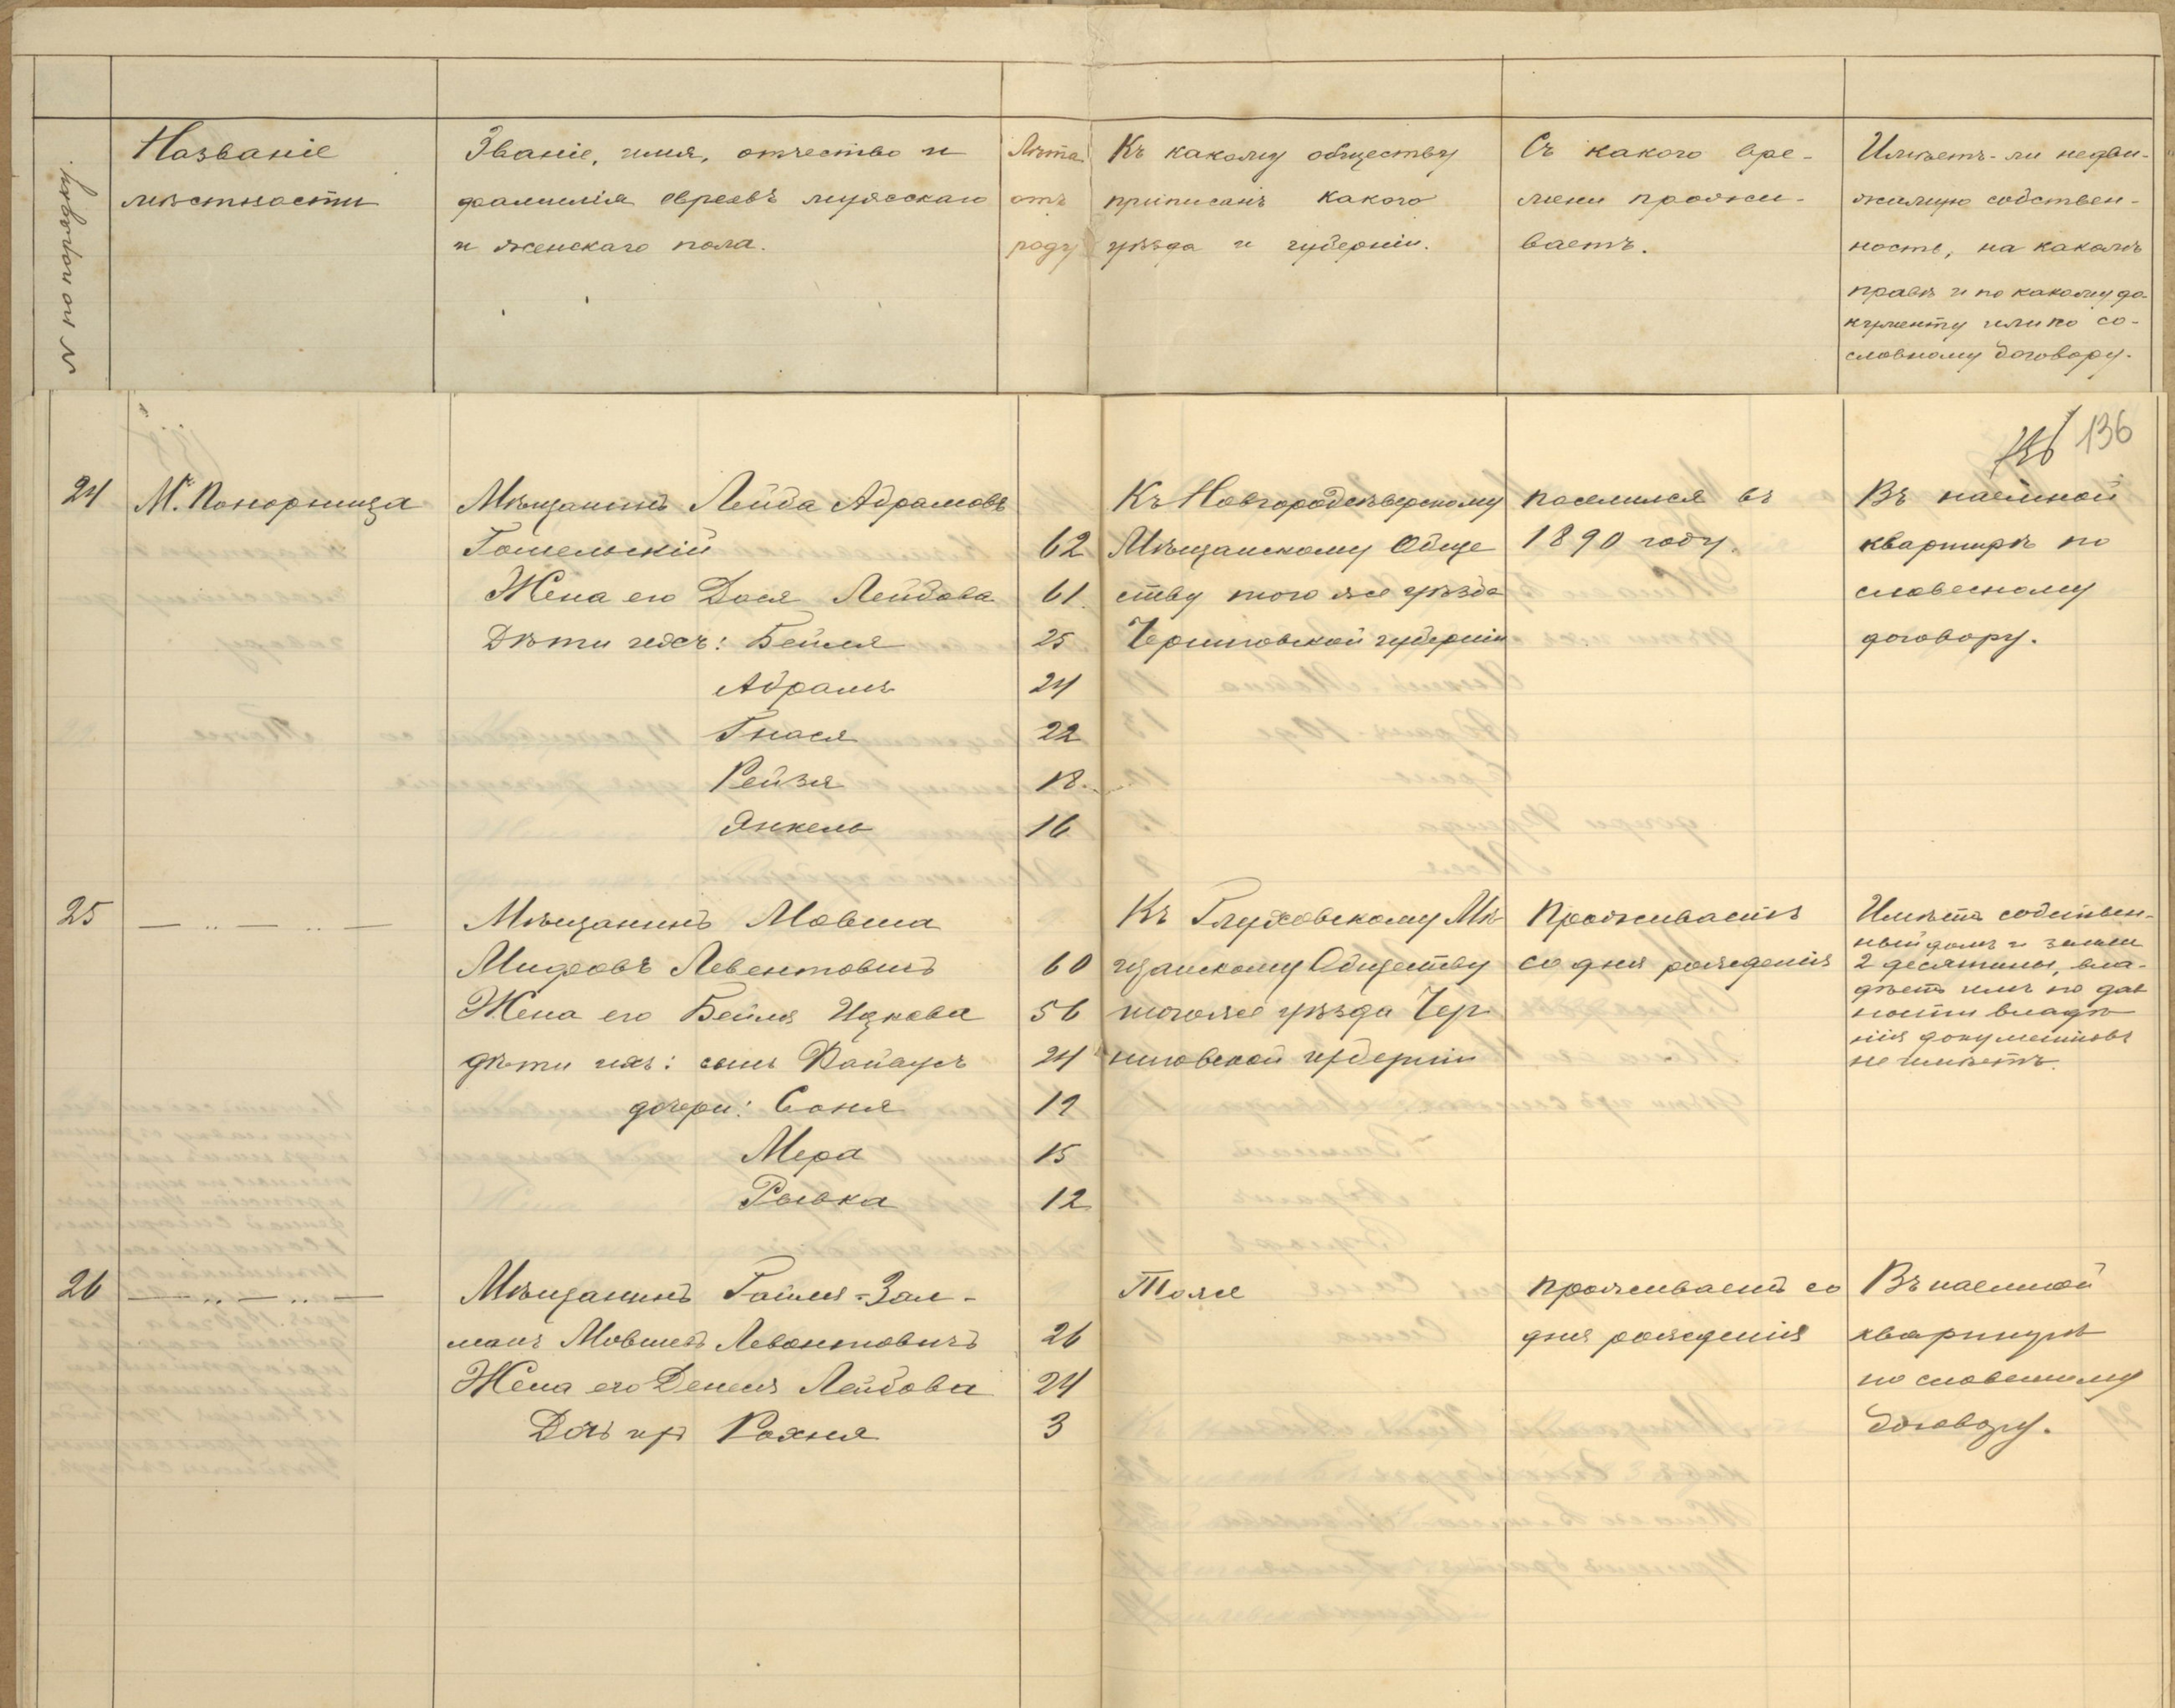 № по порядку.
Названіе
мѣстности
Званіе, имя, отчество и
фамилія евреевъ мужскаго
и женскаго пола.
Лѣта
отъ
роду
Къ какому обществу
приписанъ какого
уѣзда и губерніи.
Съ какого вре-
мени прожи-
ваетъ.
Имѣетъ-ли недви-
жимую собствен-
ность, на какомъ
правѣ и по какому до-
кументу или по со-
словному договору.
136 136
24 М. Понорница
Мѣщанинъ Лейба Абрамовъ
Гомельскій 62
Жена его Дося Лейбова 61
Дѣти ихъ: Бейля 25
Абрамъ 24
Гнася 22
Рейзя 18
Янкель 16
Къ Новгородсѣверскому
Мѣщанскому Обще
ству того же уѣзда
Черниговской губерніи
поселился въ
1890 году.
Въ наемной
квартирѣ по
словесному
договору.
25 — „ — „ —
Мѣщанинъ Мовша
Левентовичъ 60
Жена его Бейля Ицкова 56
дѣти ихъ: сынъ 24
дочери: Соня 19
Мера 15
Рывка 12
Къ Глуховскому Мѣ-
щанскому Обществу
того же уѣзда Чер
ниговской губерніи
Проживаетъ
со дня рожденія
Имѣетъ собствен-
ный домъ и земли
2 десятины, вла-
дѣетъ ими по дав
ности владѣ
нія документовъ
не имѣетъ.
26 — „ — „ —
Мѣщанинъ -Зал-
манъ Мовшевъ Левантовичъ 26
Жена его Лейбова 24
Дочь их Рохня 3
Тоже
проживаетъ со
дня рожденія
Въ наемной
квартирѣ
по словесному
договору.